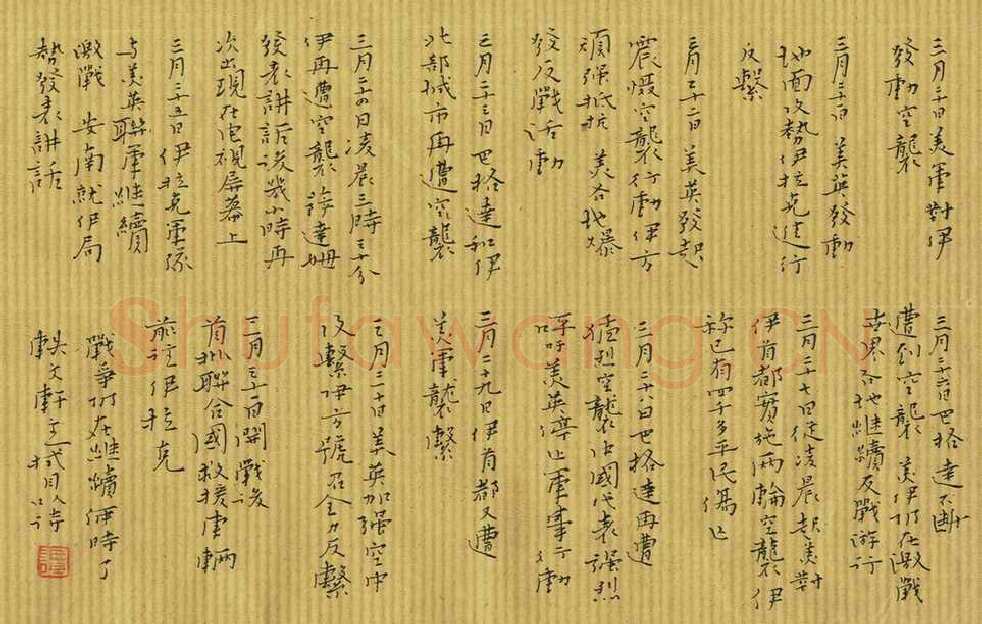 三月二十日美軍對伊
發動空襲
三月二十一日 美英發動
地面攻勢伊拉克進行
反擊
三月二十二日美英發起
震慑空襲行動伊方
頑强抵抗 美各地爆
發反戰活動
三月二十三日巴格達和伊
北部城市再遭空襲
三月二十四日凌晨三時三十分
伊再遭空襲 薩達姆
發表講話後幾小時再
次出現在电視屏幕上
三月二十五日伊拉克軍隊
与美英聯軍继續
激戰 安南就伊局
勢發表講話
三月二十六日巴格達不斷
遭到空襲 美伊仍在激戰
世界各地继續反戰游行
三月二十七日從凌晨起美對
伊首都實施兩輪空襲伊
称已有四千多平民傷亡
三月二十八日巴格達再遭
猛烈空襲 國代表强烈
呼吁美英停止軍事行動
三月二十九日伊首都又遭
美軍襲擊
三月三十日美英加强空中
攻擊伊方號召全力反擊
三月三十一日開戰後
首批聯合國救援車輛
前往伊拉克
戰爭仍在继續何時了
軼文軒主
Shufawang.CN